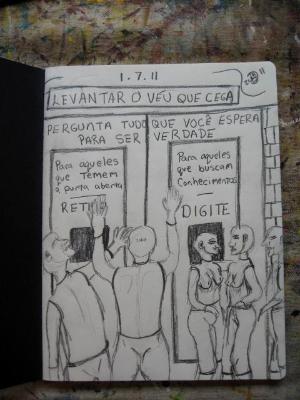 1.7.11
LEVANTAR O VÉU QUE CEGA
PERGUNTA TUDO QUE VOCÊ ESPERA
PARA SER VERDADE
Para aqueles
que Temem
a aberta
Para aqueles
que buscam
Conhecimentos
DIGITE